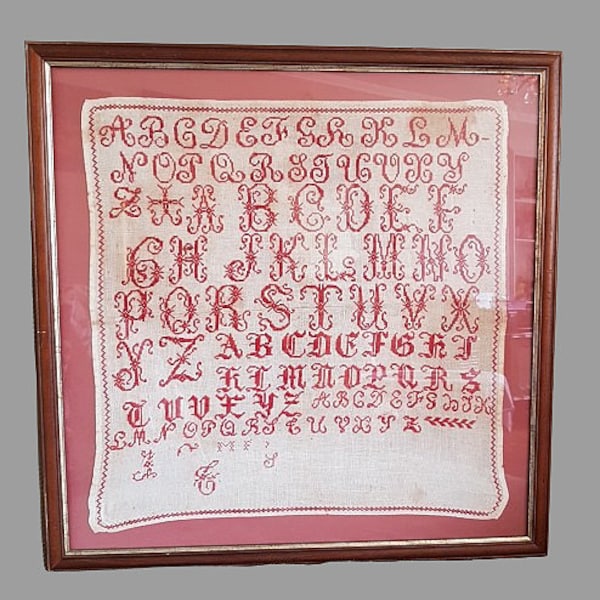 A B C D E F G H K L M
N O P Q R S T U V X Y
Z A B C D E F
G H J K L M N O
P Q R S T U V X
Y Z A B C D E F G H I
K L M N O P Q R S
T U V X Y Z A B C D E F G H J K
L M N O P Q R S T U V X Y Z
M F